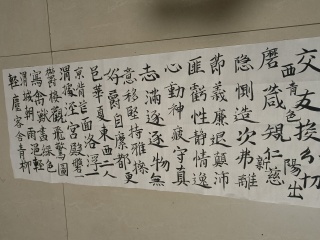 交友投分切
磨箴規仁慈
西青色陽出
隱惻造次弗離
節義廉退顛沛
匪虧性靜情逸
心動神疲守真
志滿逐物
意移堅持雅操
好爵自縻都
邑華夏東西二
京背邙面洛浮
渭據涇宮殿
樓觀飛驚圖
寫禽獸畫
渭城朝雨浥輕
輕塵客舍青柳